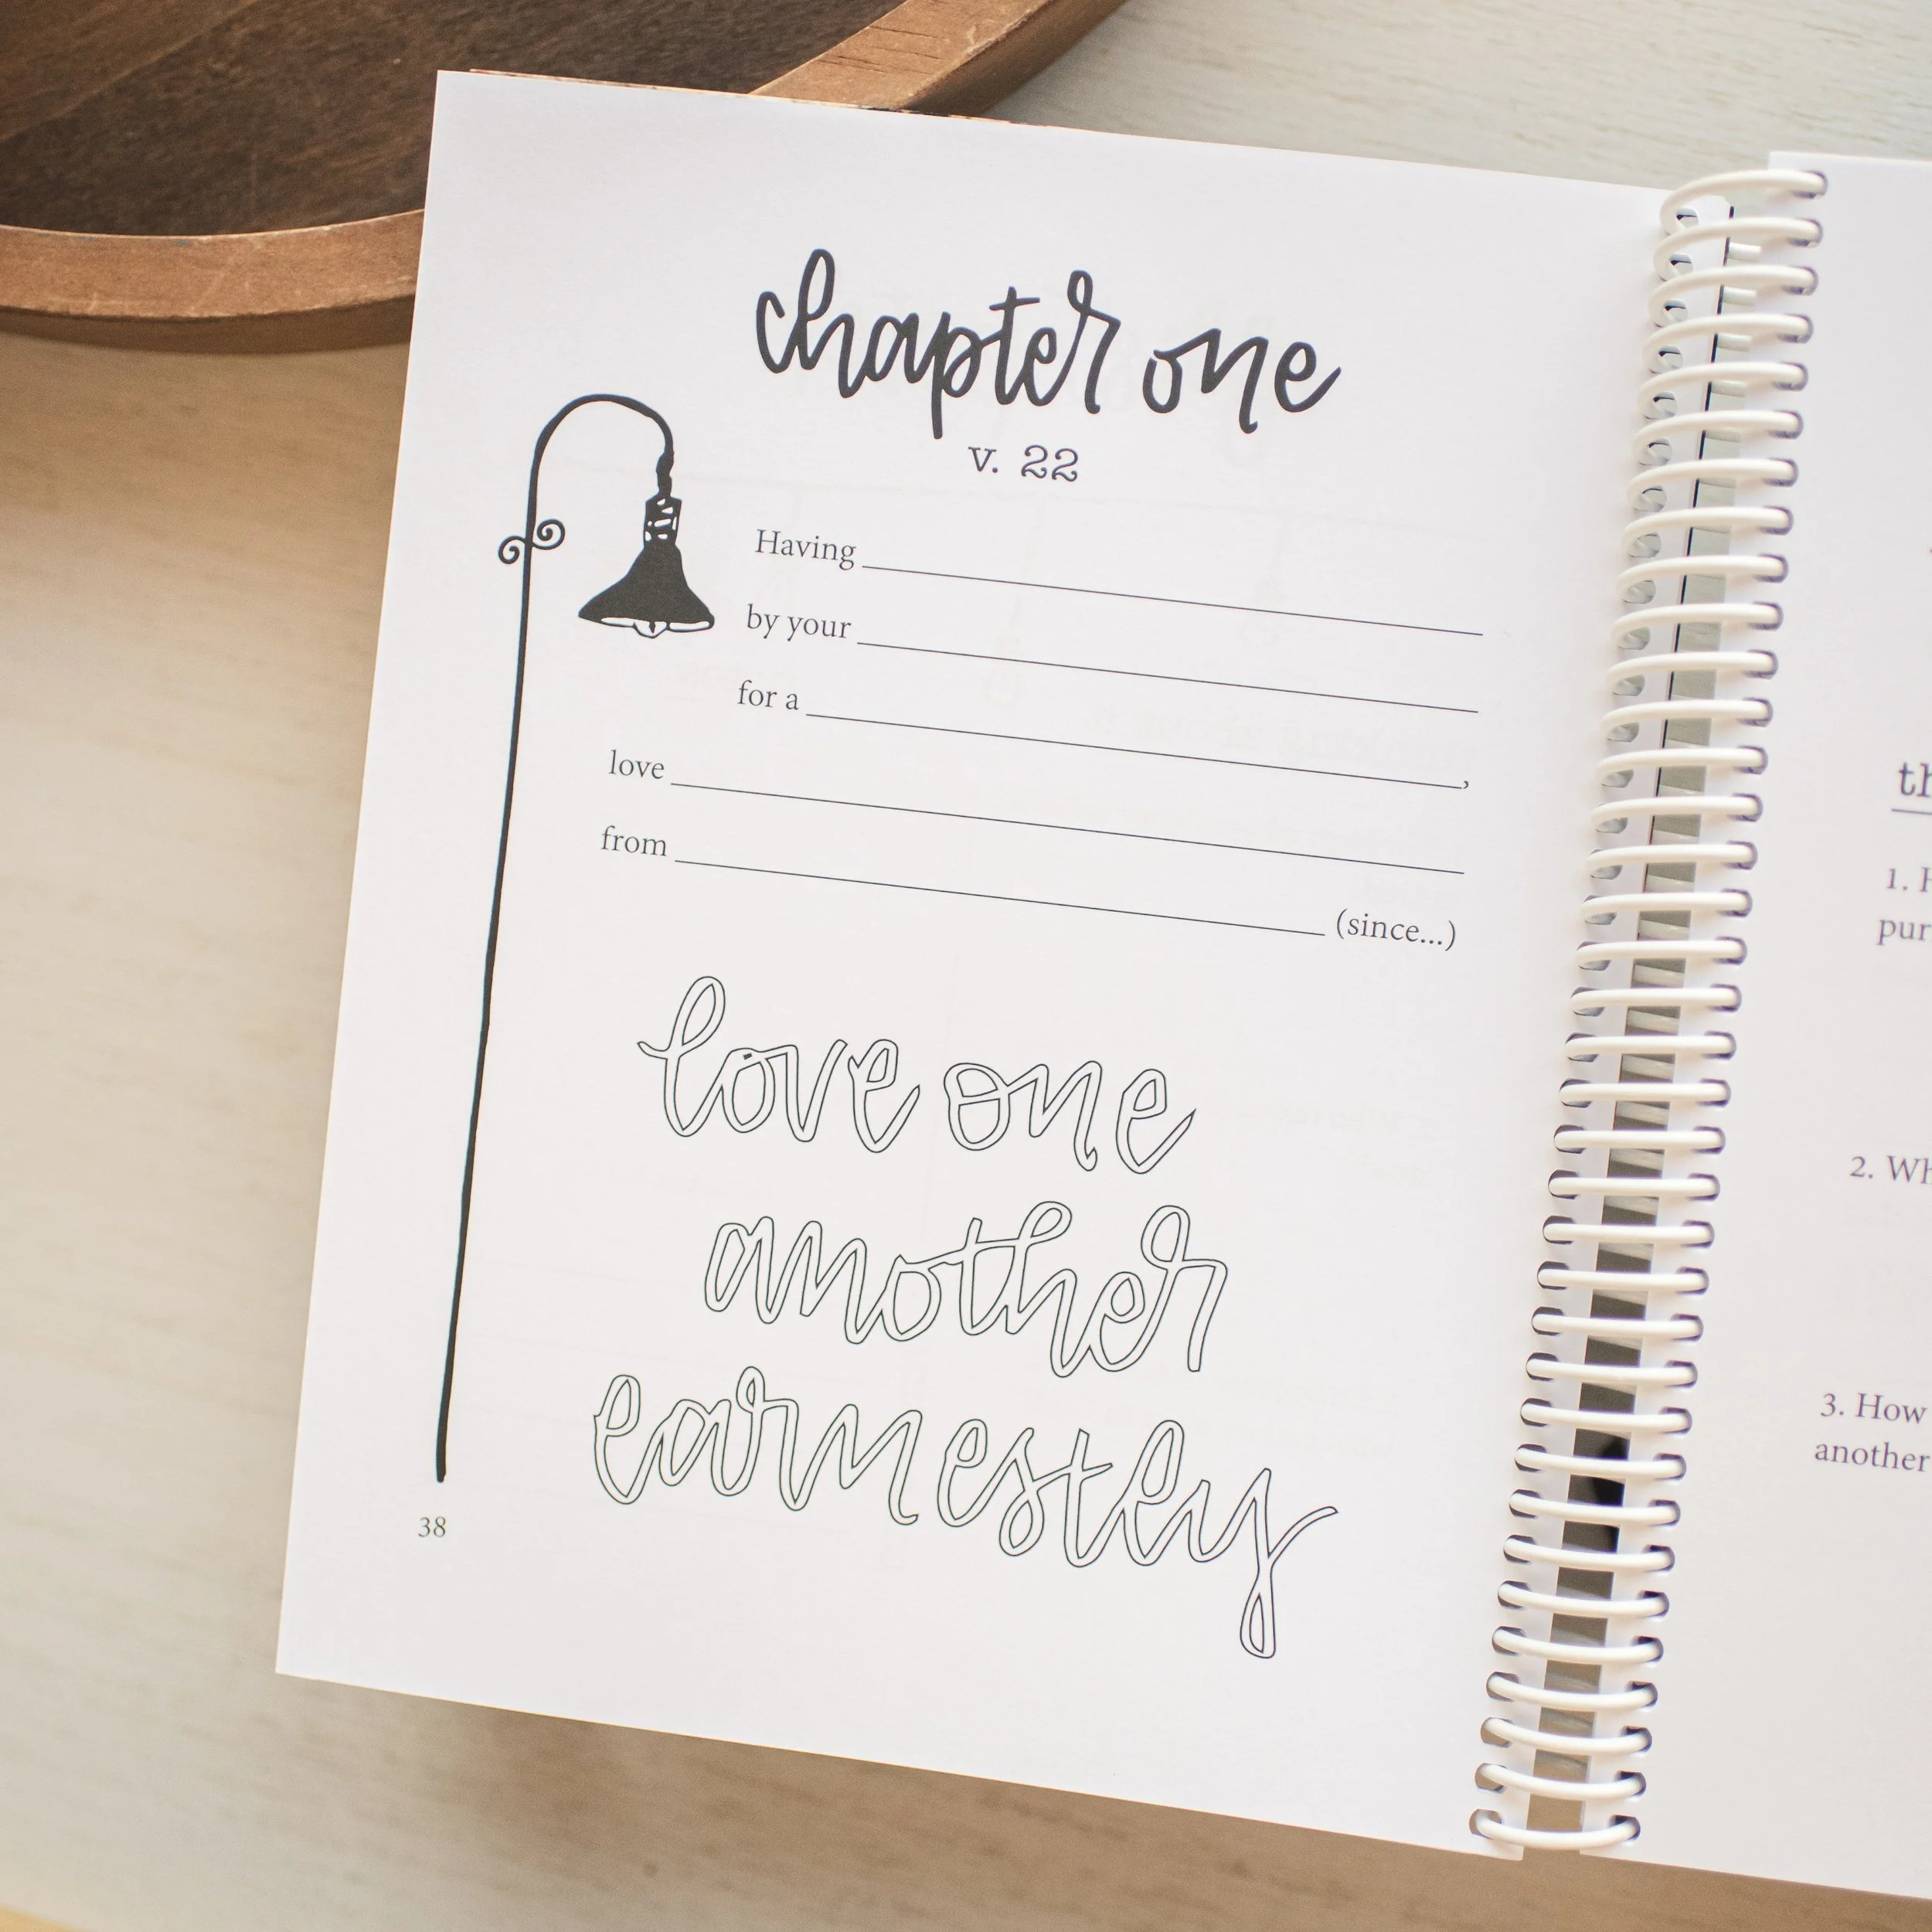 chapter one
v. 22
Having
by your
for a ,
love
from (since...)
love one
another
earnestly
38
1.
2.
3. How
another